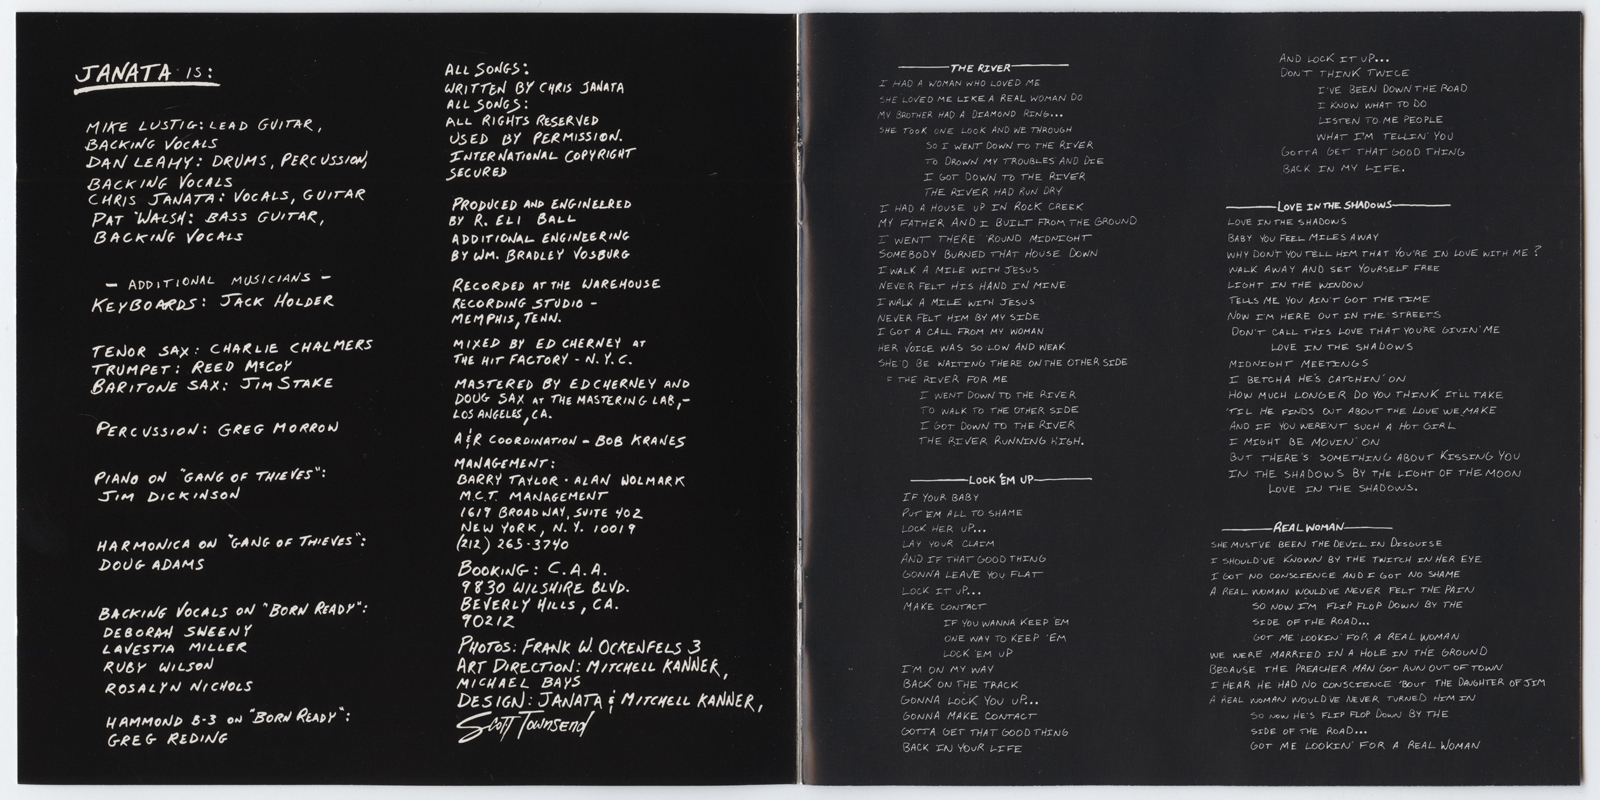 JANATA IS:
MIKE LUSTIG: LEAD GUITAR,
BACKING VOCALS
DAN LEAHY: DRUMS, PERCUSSION,
BACKING VOCALS
CHRIS JANATA: VOCALS, GUITAR
PAT WALSH: BASS GUITAR,
BACKING VOCALS
- ADDITIONAL MUSICIANS -
KEYBOARDS: JACK HOLDER
TENOR SAX: CHARLIE CHALMERS
TRUMPET: REED McCOY
BARITONE SAX: JIM STAKE
PERCUSSION: GREG MORROW
PIANO ON "GANG OF THIEVES":
JIM DICKINSON
HARMONICA ON "GANG OF THIEVES":
DOUG ADAMS
BACKING VOCALS ON "BORN READY":
DEBORAH SWEENY
LAVESTIA MILLER
RUBY WILSON
ROSALYN NICHOLS
HAMMOND B-3 ON "BORN READY":
GREG REDING
ALL SONGS:
WRITTEN BY CHRIS JANATA
ALL SONGS:
ALL RIGHTS RESERVED
USED BY PERMISSION.
INTERNATIONAL COPYRIGHT
SECURED
PRODUCED AND ENGINEERED
BY R. ELI BALL
ADDITIONAL ENGINEERING
BY WM. BRADLEY VOSBURG
RECORDED AT THE WAREHOUSE
RECORDING STUDIO -
MEMPHIS, TENN.
MIXED BY ED CHERNEY AT
THE HIT FACTORY - N.Y.C.
MASTERED BY ED CHERNEY AND
DOUG SAX AT THE MASTERING LAB,-
LOS ANGELES, CA.
A&R COORDINATION - BOB KRANES
MANAGEMENT:
BARRY TAYLOR · ALAN WOLMARK
M.C.T. MANAGEMENT
1619 BROADWAY, SUITE 402
NEW YORK, N.Y. 10019
(212) 265-3740
BOOKING: C.A.A.
9830 WILSHIRE BLVD.
BEVERLY HILLS, CA.
90212
PHOTOS: FRANK W OCKENFELS 3
ART DIRECTION: MITCHELL KANNER,
MICHAEL BAYS
DESIGN: JANATA & MITCHELL KANNER,
SCOTT TOWNSEND
THE RIVER
I HAD A WOMAN WHO LOVED ME
SHE LOVED ME LIKE A REAL WOMAN DO
MY BROTHER HAD A DIAMOND RING...
SHE TOOK ONE LOOK AND WE THROUGH
SO I WENT DOWN TO THE RIVER
TO DROWN MY TROUBLES AND DIE
I GOT DOWN TO THE RIVER
THE RIVER HAD RUN DRY
I HAD A HOUSE UP IN ROCK CREEK
MY FATHER AND I BUILT FROM THE GROUND
I WENT THERE 'ROUND MIDNIGHT
SOMEBODY BURNED THAT HOUSE DOWN
I WALK A MILE WITH JESUS
NEVER FELT HIS HAND IN MINE
I WALK A MILE WITH JESUS
NEVER FELT HIM BY MY SIDE
I GOT A CALL FROM MY WOMAN
HER VOICE WAS SO LOW AND WEAK
SHE'D BE WAITING THERE ON THE OTHER SIDE
THE RIVER FOR ME
I WENT DOWN TO THE RIVER
TO WALK TO THE OTHER SIDE
I GOT DOWN TO THE RIVER
THE RIVER RUNNING HIGH.
LOCK 'EM UP
IF YOUR BABY
PUT 'EM ALL TO SHAME
LOCK HER UP...
LAY YOUR CLAIM
AND IF THAT GOOD THING
GONNA LEAVE YOU FLAT
LOCK IT UP...
MAKE CONTACT
IF YOU WANNA KEEP 'EM
ONE WAY TO KEEP 'EM
LOCK 'EM UP
I'M ON MY WAY
BACK ON THE TRACK
GONNA LOCK YOU UP...
GONNA MAKE CONTACT
GOTTA GET THAT GOOD THING
BACK IN YOUR LIFE
AND LOCK IT UP...
DON'T THINK TWICE
I'VE BEEN DOWN THE ROAD
I KNOW WHAT TO DO
LISTEN TO ME PEOPLE
WHAT I'M TELLIN' YOU
GOTTA GET THAT GOOD THING
BACK IN MY LIFE.
LOVE IN THE SHADOWS
LOVE IN THE SHADOWS
BABY YOU FEEL MILES AWAY
WHY DON'T YOU TELL HIM THAT YOU'RE IN LOVE WITH ME?
WALK AWAY AND SET YOURSELF FREE
LIGHT IN THE WINDOW
TELLS ME YOU AIN'T GOT THE TIME
NOW I'M HERE OUT IN THE STREETS
DON'T CALL THIS LOVE THAT YOU'RE GIVIN' ME
LOVE IN THE SHADOWS
MIDNIGHT MEETINGS
I BETCHA HE'S CATCHIN' ON
HOW MUCH LONGER DO YOU THINK IT'LL TAKE
'TIL HE FINDS OUT ABOUT THE LOVE WE MAKE
AND IF YOU WEREN'T SUCH A HOT GIRL
I MIGHT BE MOVIN' ON
BUT THERE'S SOMETHING ABOUT KISSING YOU
IN THE SHADOWS BY THE LIGHT OF THE MOON
LOVE IN THE SHADOWS.
REAL WOMAN
SHE MUST'VE BEEN THE DEVIL IN DISGUISE
I SHOULD'VE KNOWN BY THE TWITCH IN HER EYE
I GOT NO CONSCIENCE AND I GOT NO SHAME
A REAL WOMAN WOULD'VE NEVER FELT THE PAIN
SO NOW I'M FLIP FLOP DOWN BY THE
SIDE OF THE ROAD...
GOT ME LOOKIN' FOR A REAL WOMAN
WE WERE MARRIED IN A HOLE IN THE GROUND
BECAUSE THE PREACHER MAN GOT RUN OUT OF TOWN
I HEAR HE HAD NO CONSCIENCE 'BOUT THE DAUGHTER OF JIM
A REAL WOMAN WOULD'VE NEVER TURNED HIM IN
SO NOW HE'S FLIP FLOP DOWN BY THE
SIDE OF THE ROAD...
GOT ME LOOKIN' FOR A REAL WOMAN